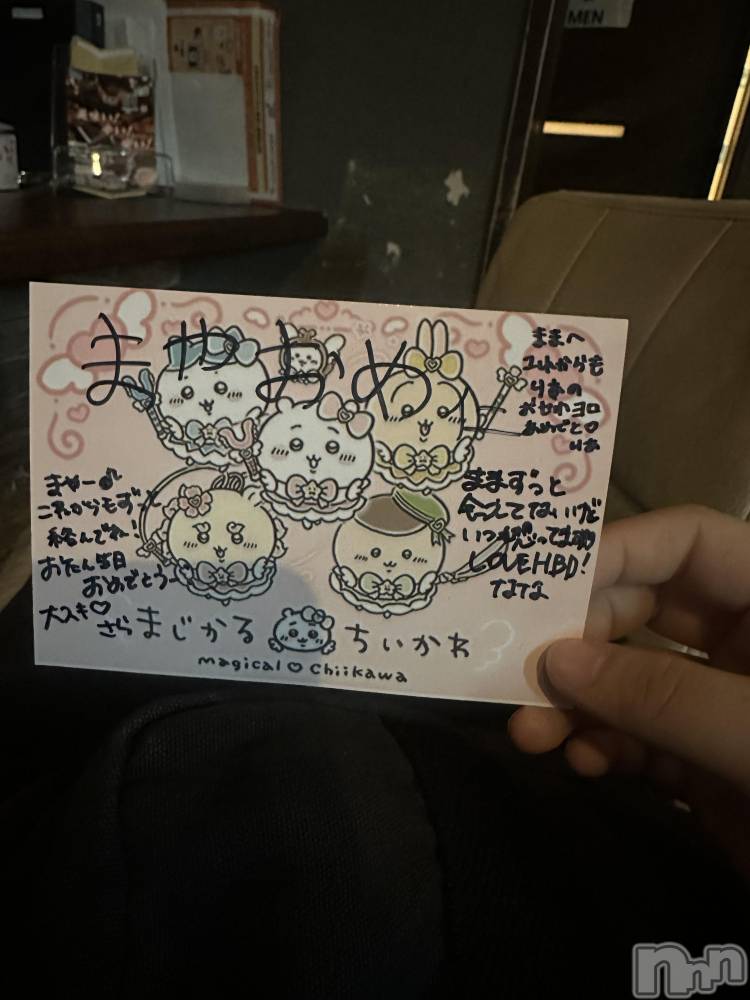 MEN
まやおめ
ままへ
これからも
りあの
おせわヨロ
おめでと♡
りあ
まやー
これからもずーっと
絡んでれ!
おたん生日
おめでとうー
大スキ♡
さら
ままずっと
会えてないけど
いつも想ってます
LOVE HBD!
なな
まじかる ちいかわ
magical ♡ Chiikawa
nnn